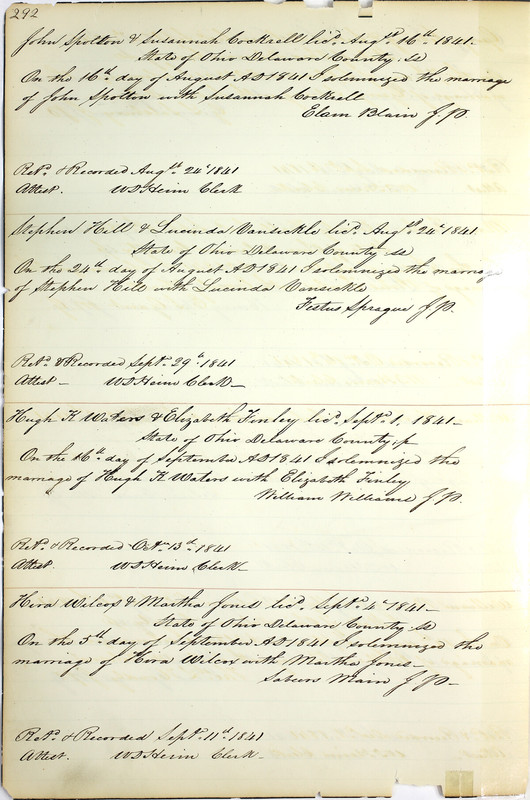 292
John Spolton & Susannah Cockrell licd. Augst. 16th. 1841.
State of Ohio Delaware County. ss
On the 16th. day of August AD 1841 I solemnized the marriage
of John Spolton with Susannah Cockrell
Elam Blain J.P.
Retd. & Recorded Augst. 24th. 1841
Attest. W D Heim Clerk
Stephen Hill & Lucinda Vansickle licd. Augst. 24th. 1841
State of Ohio Delaware County ss
On the 24th. day of August AD 1841 I solemnized the marriage
of Stephen Hill with Lucinda Vansickle
Festus Sprague J.P.
Retd. & Recorded Sept. 29th. 1841
Attest — W D Heim Clerk —
Hugh K Waters & Elizabeth Finley licd. Sept. 1, 1841 —
State of Ohio Delaware County, ss
On the 16th. day of September AD 1841 I solemnized the
marriage of Hugh K Waters with Elizabeth Finley
William Williams J.P.
Retd. & Recorded Octr. 13th. 1841
Attest. W D Heim Clerk —
Hira Wilcox & Martha Jones licd. Sept. 4th. 1841 —
State of Ohio Delaware County. ss
On the 5th day of September AD 1841 I solemnized the
marriage of Hira Wilcox with Martha Jones —
Main J.P. —
Retd. & Recorded Sept. 11th. 1841
Attest. W D Heim Clerk —